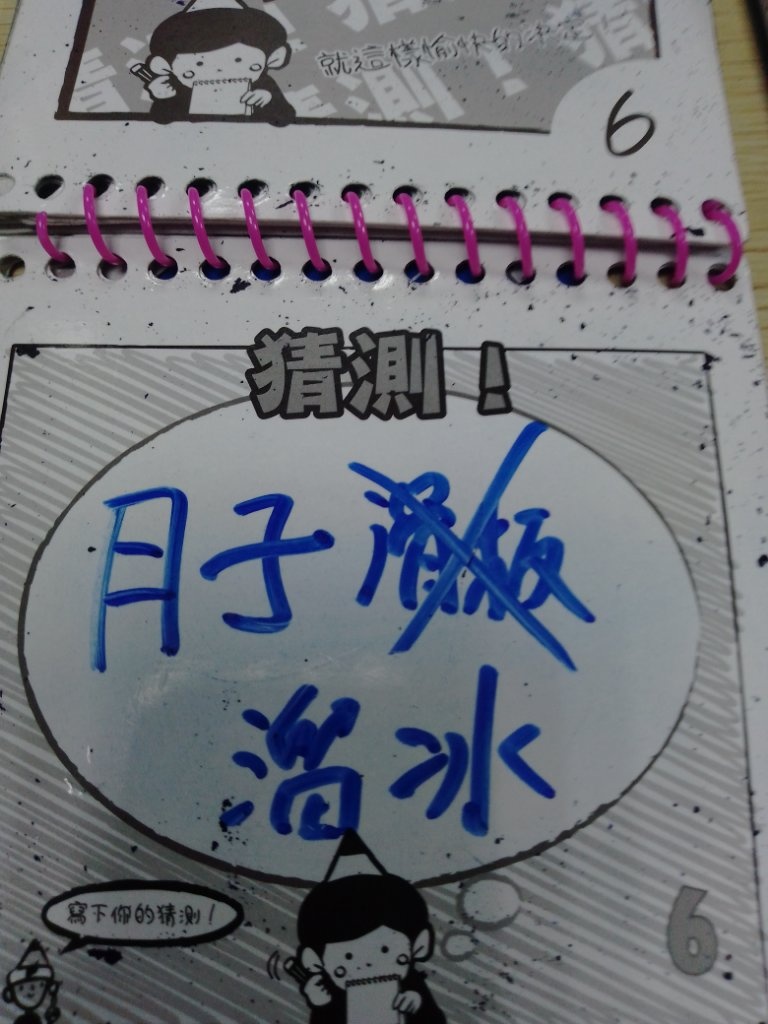 就這樣愉快的決定！
6
猜測！
日子 滑板
溜冰
寫下你的猜測！
6